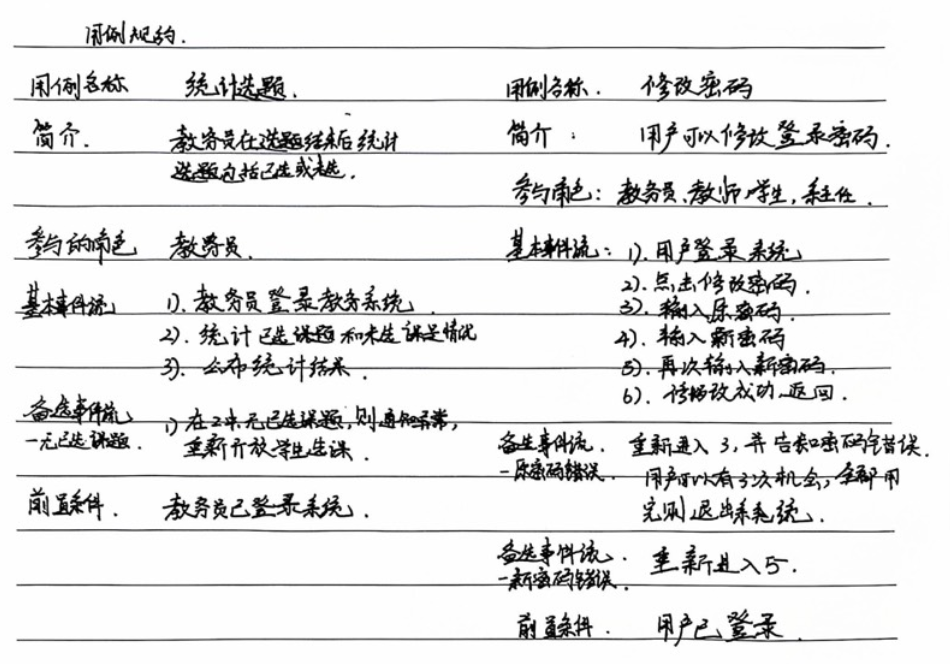 用例规约.
用例名称 统计选题.
简介. 教务员在选题结束后统计
选题包括已选或未选.
参与的角色 教务员.
基本事件流 1). 教务员登录教务系统
2). 统计已选课题和未选课题情况
3). 公布统计结果.
备选事件流 1) 在2中无已选课题, 则通知异常,
一无已选课题. 重新开放学生选课
前置条件. 教务员已登录系统.
用例名称. 修改密码
简介: 用户可以修改登录密码.
参与角色: 教务员、教师, 学生, 系主任.
基本事件流: 1). 用户登录系统
2). 点击修改密码.
3). 输入原密码.
4). 输入新密码
5). 再次输入新密码.
6). 修改成功, 返回.
备选事件流. 重新进入3, 并告知密码错误.
一原密码错误. 用户可以有3次机会, 全部用
完则退出系统.
备选事件流. 重新进入5.
一新密码错误.
前置条件. 用户已登录.